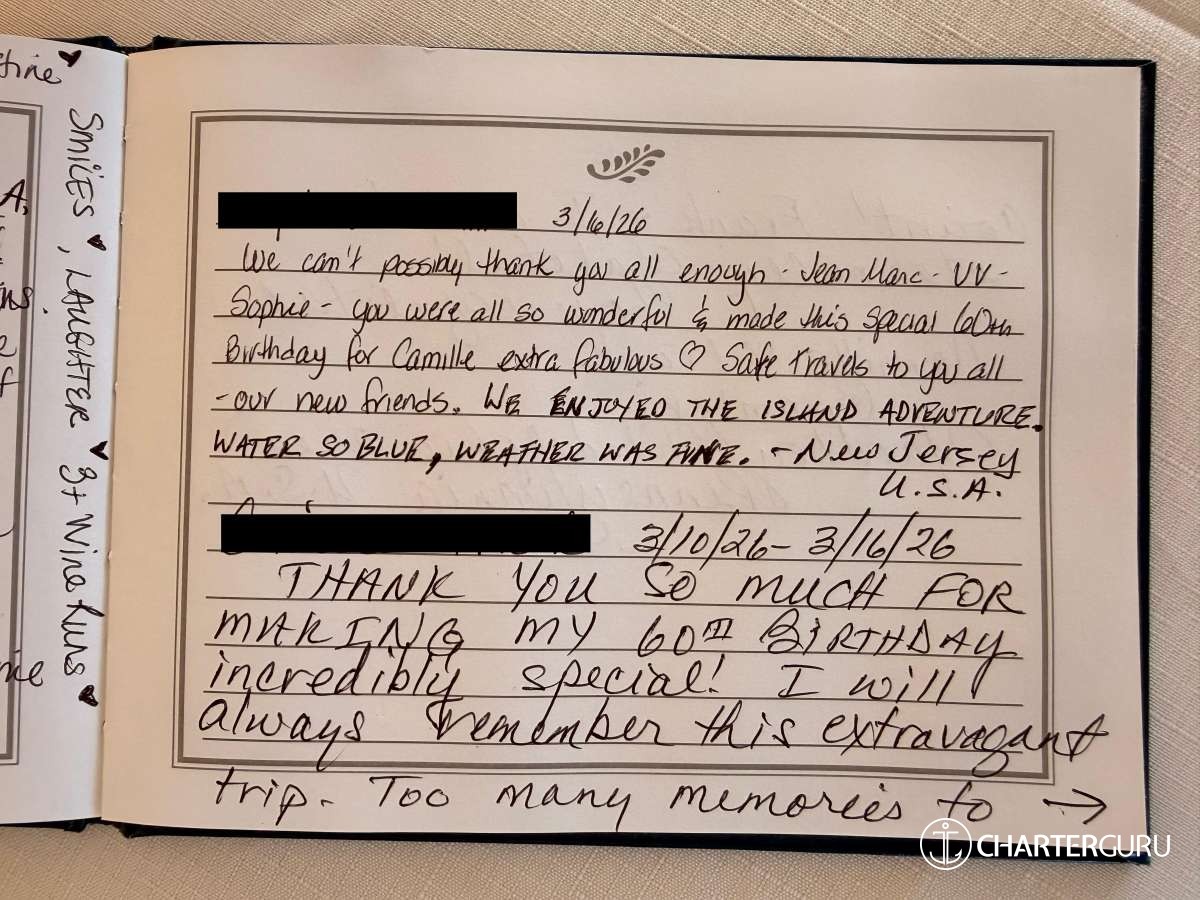 stine ♥
SMILES ♥, LAUGHTER ♥ 3+ Wine Runs ♥
A,
3/16/26
We can't possibly thank you all enough - Jean Marc - VV -
Sophie - you were all so wonderful & made this special 60th
Birthday for Camille extra fabulous ♡ Safe travels to you all
- our new friends. WE ENJOYED THE ISLAND ADVENTURE.
WATER SO BLUE, WEATHER WAS FINE. - New Jersey
U.S.A.
3/10/26 - 3/16/26
THANK YOU SO MUCH FOR
MAKING MY 60TH BIRTHDAY
incredibly special! I will
always remember this extravagant
trip. Too many memories to →
CHARTERGURU